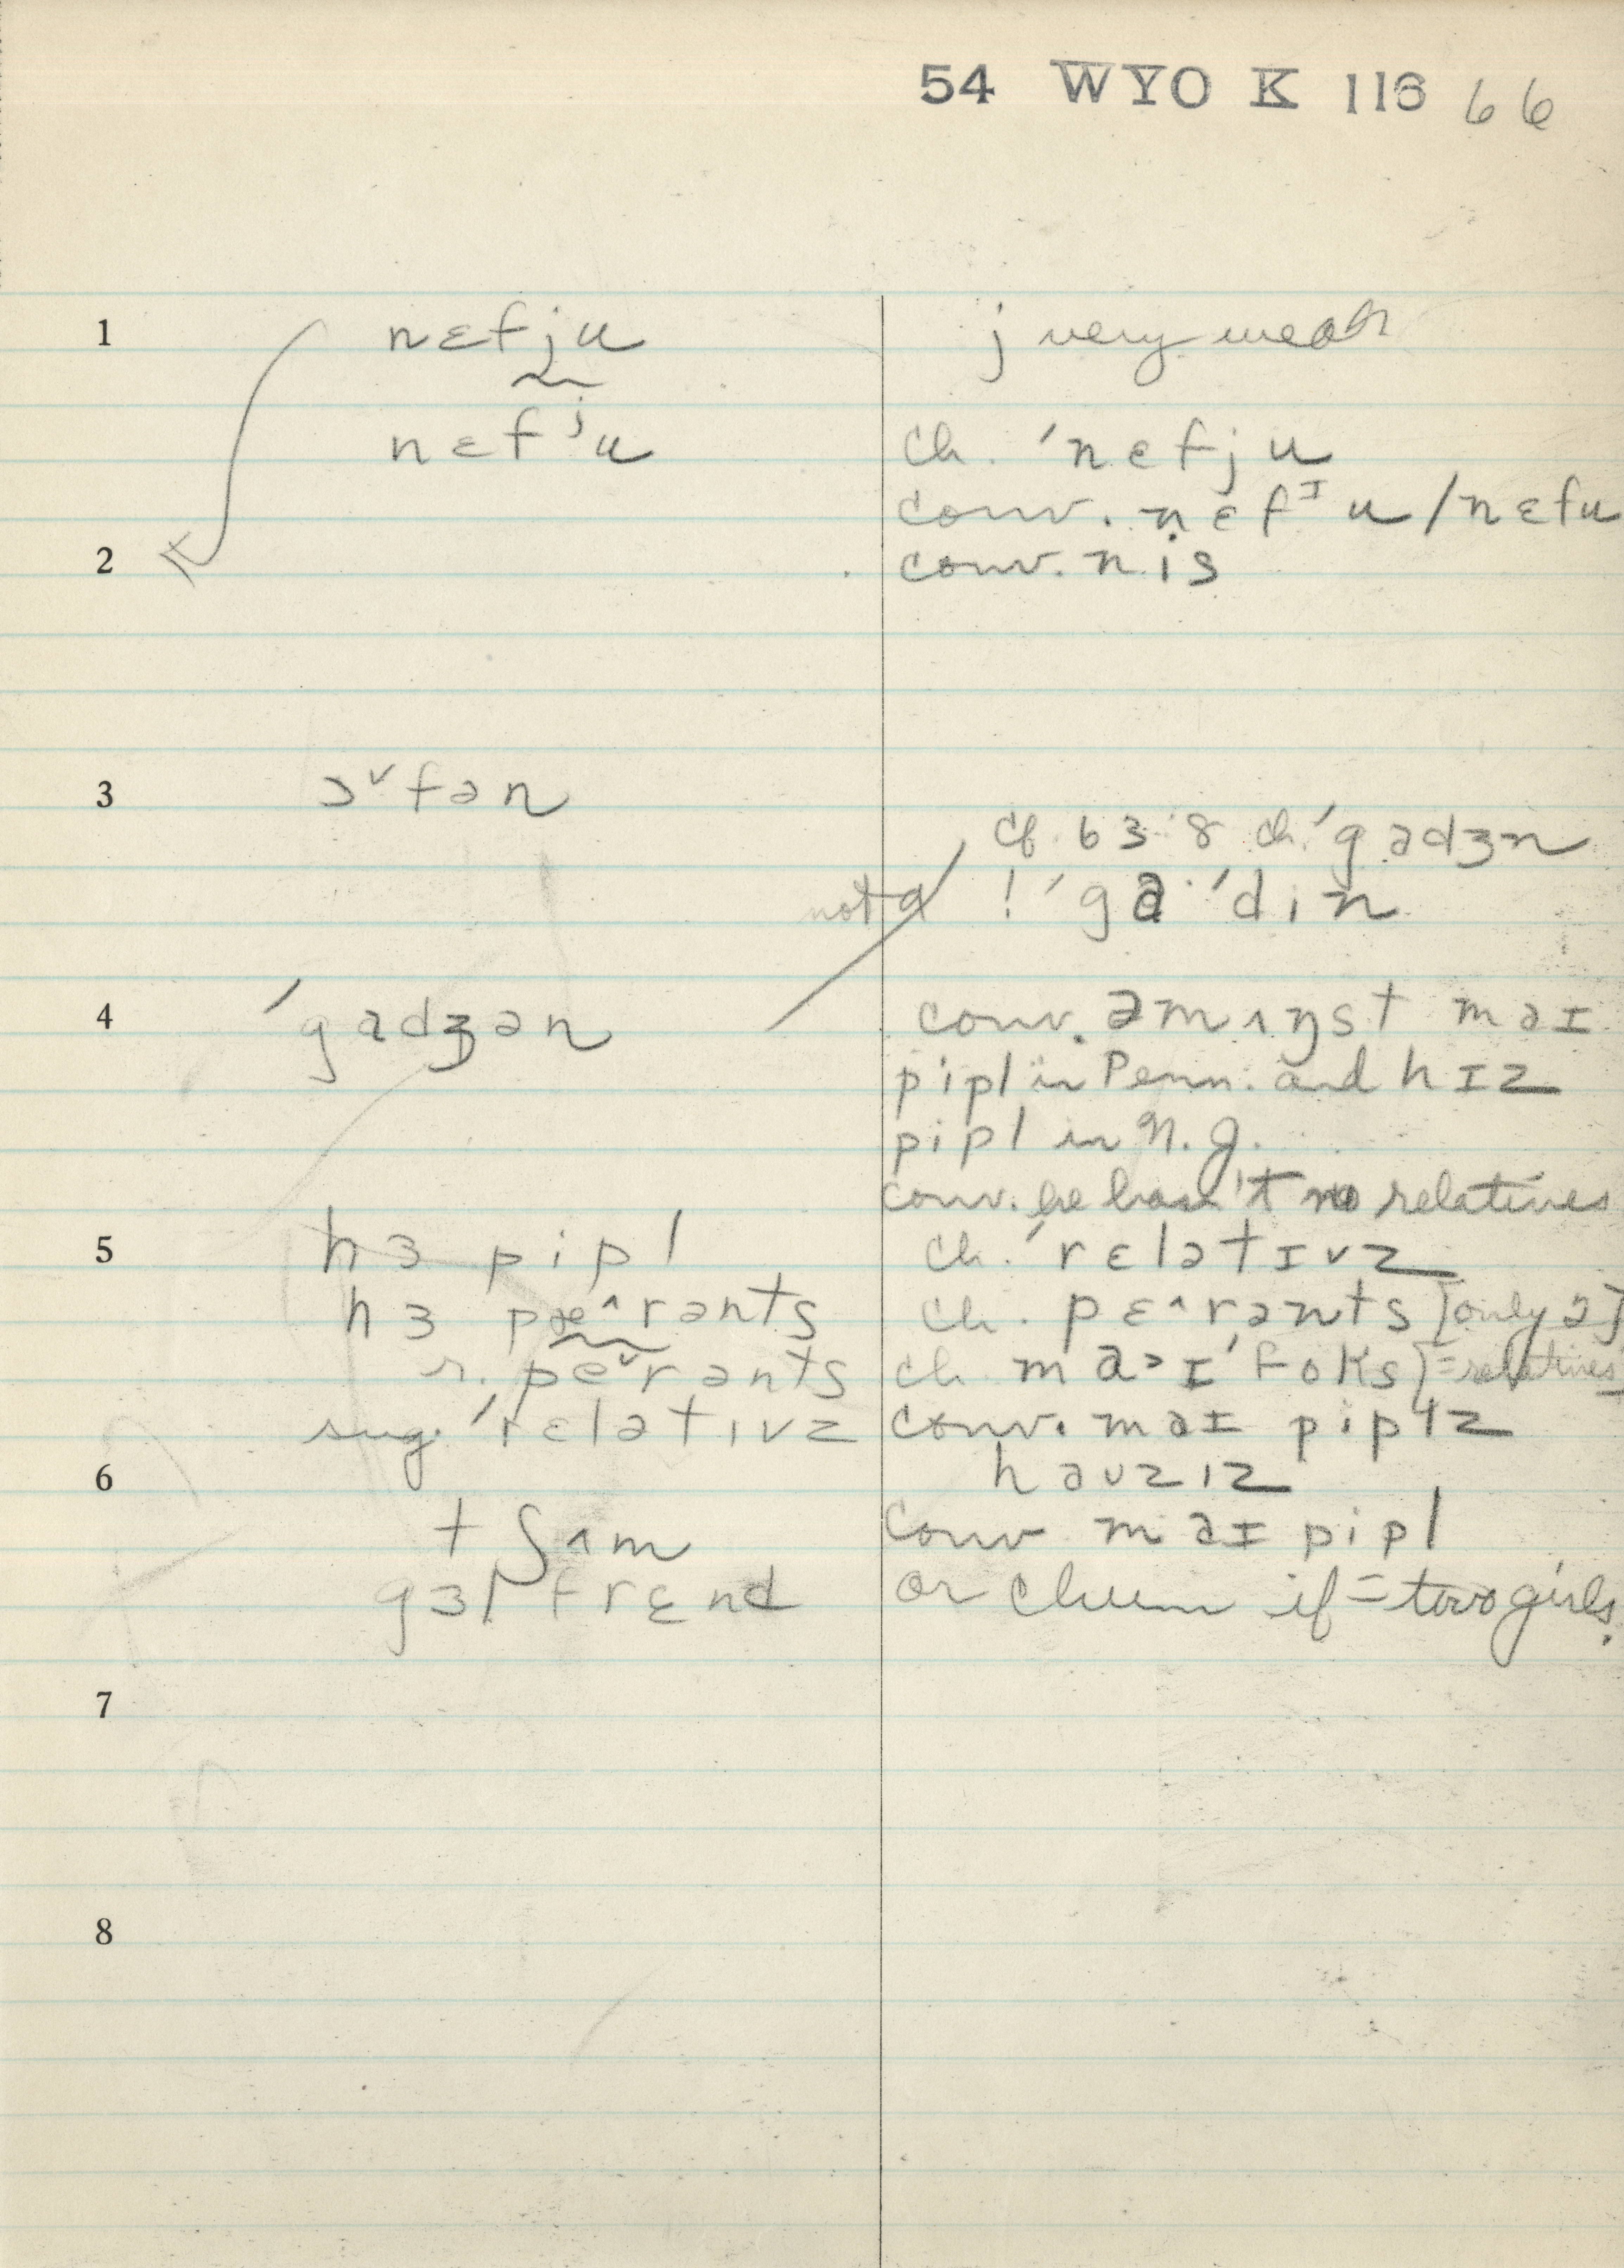 54 WYO K 116 66
1 nɛfju j very weak
nɛfʲu ch. ˈnɛfju
conv. nɛfᴵu / nɛfu
2 conv. nis
3 ɔ˅fən
cf. 63.8 ch. ˈgɑdʒn
not a ! ˈgɑ·ˈdin
4 ˈgɑdʒən conv. əmʌŋst maɪ
pipl in Penn. and hɪz
pipl in N.J.
conv. he hasn't no relatives
5 hɜ pipl ch. ˈrɛlətɪvz
hɜ pæ^rənts ch. pɛ^rənts [only 2]
r. pe˅rənts ch. ma>ɪ ˈfoks [=relatives]
sug. ˈrɛlətɪvz conv. maɪ piplz
6 hauzɪz
tʃʌm conv maɪ pipl
gɜl frɛnd or chum if = two girls.
7
8